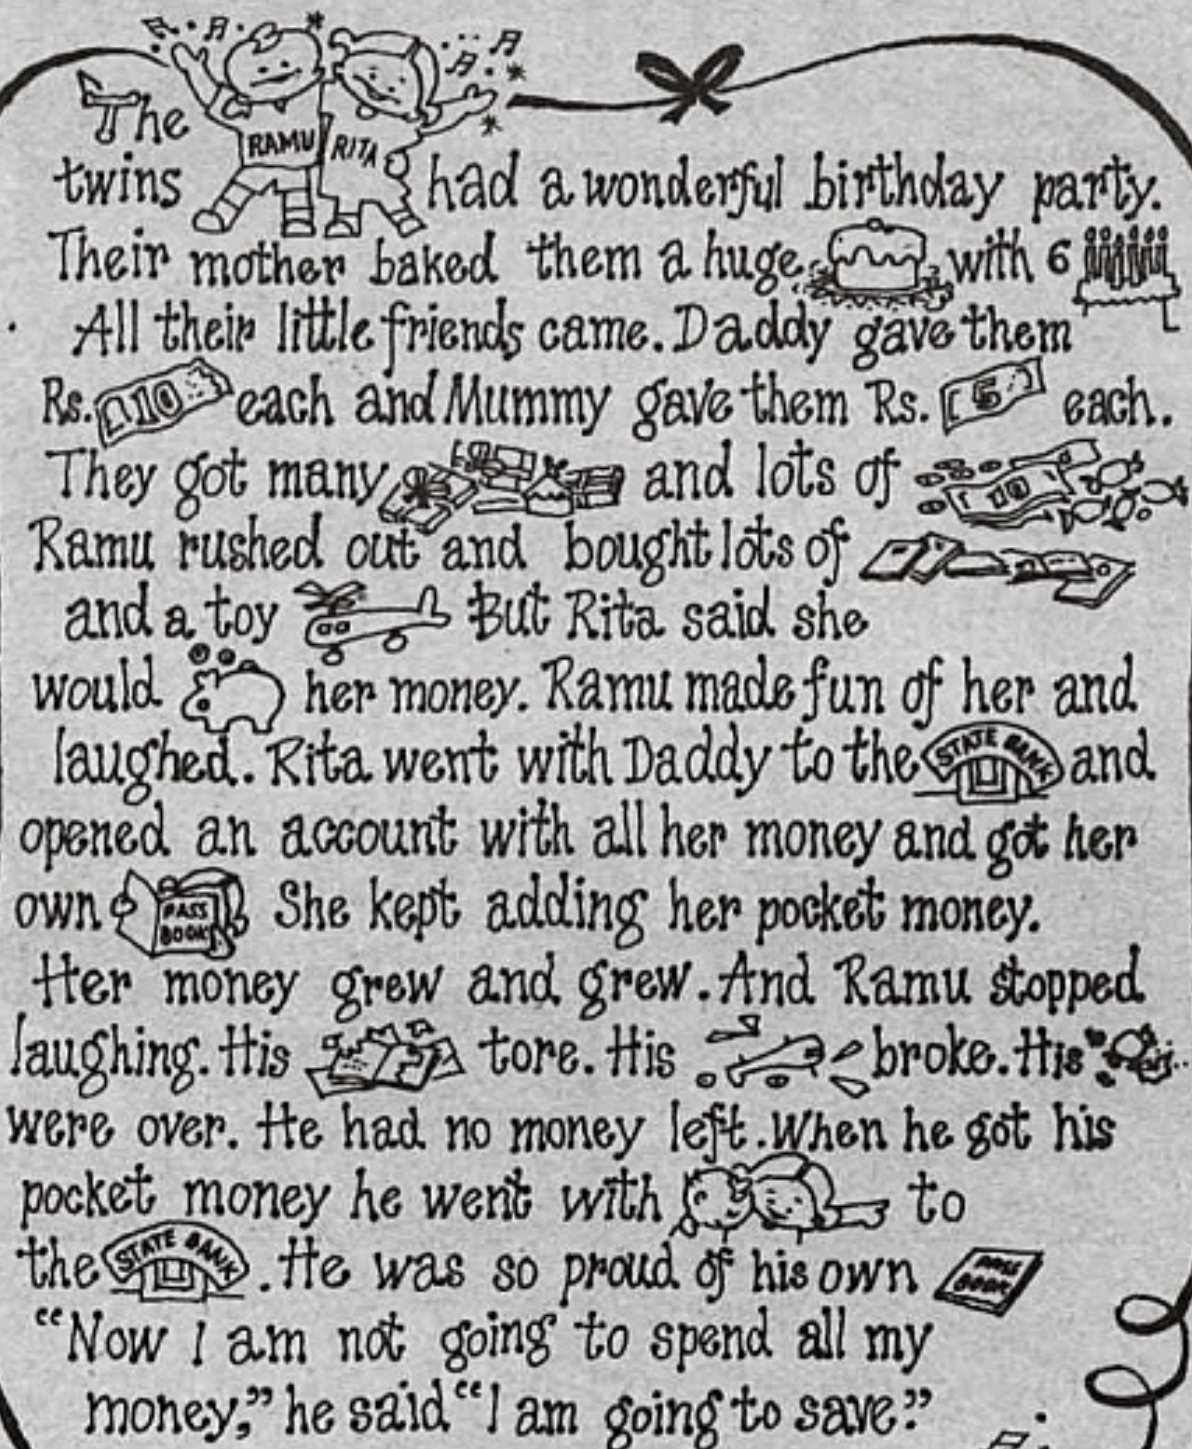 The
RAMU RITA
twins had a wonderful birthday party.
Their mother baked them a huge with 6
All their little friends came. Daddy gave them
Rs. 10 each and Mummy gave them Rs. 5 each.
They got many and lots of 10
Ramu rushed out and bought lots of
and a toy But Rita said she
would her money. Ramu made fun of her and
laughed. Rita went with Daddy to the STATE BANK and
opened an account with all her money and got her
own PASS BOOK She kept adding her pocket money.
Her money grew and grew. And Ramu stopped
laughing. His tore. His broke. His
were over. He had no money left. When he got his
pocket money he went with to
the STATE BANK. He was so proud of his own PASS BOOK
“Now I am not going to spend all my
money,” he said “I am going to save.”